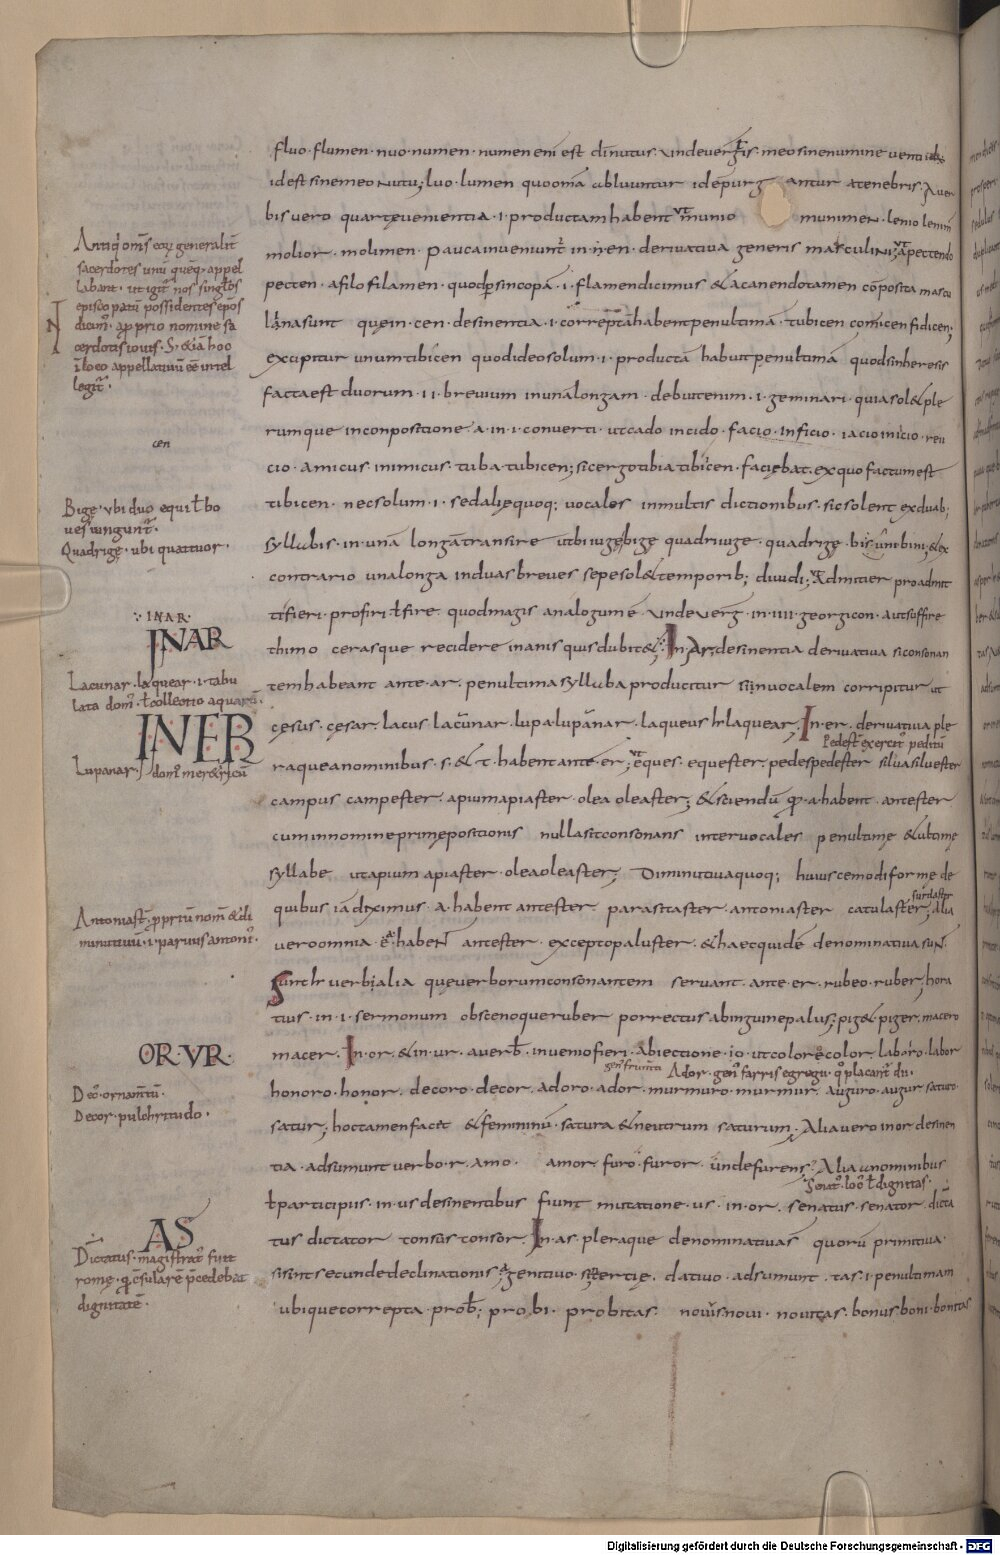 fluo · flumen · nuo · numen · numen eni est dinutus · unde uergis · meo sine numine uenti
id est sine meo nutu; luo · lumen quo om̄a abluuntur id ē purg antur a tenebris · A uer
bis uero quartę uenientia · i · productam habent ut munio munimen · lenio lenim̄
molior · molimen · Pauca inueniunt̄ in · en · deriuatiua generis masculini; ut a pectendo
pecten · a filo filamen · quod p sincopā · i · flamen dicimus & a canendo tamen cōposita mascu
lina sunt que in · cen · desinentia · i · correptā habent penultimā · tubicen cornicen fidicen;
excipitur unum tibicen quod ideo solum · i · productā habuit penultimā quod sinheresis
facta est duorum · i i · breuium in unā longam · debuit enim · i · geminari · quia sol& ple
rumque in conpositione · a · in · i · conuerti · ut cado incido · facio · inficio · iacio inicio · rei
cio · amicus inimicus · tuba tubicen; sic ergo tibia tibicen · faciebat · ex quo factum est
tibicen · nec solum · i · sed alięquoq; uocales in multis dictionibus · sic solent ex duab;
syllabis · in · unā longā transire ut biiugę bige quadriiuge · quadrigę · bis uni bini; & ex
contrario una longa in duas breues sepe sol& temporib; diuidi; ut Admittier pro admit
ti fieri · pro firi t̄ fire · quod magis analogum ē · unde uerg · in · iiii · georgicon · aut suffire
thimo cerasque recidere inanis quis dubit&; In · Ar; desinentia deriuatiua si conson an
tem habeant ante · ar · penultima syllaba producitur si in uocalem corripitur ut
cęsus · cęsar · lacus lacunar · lupa · lupanar · laqueus hr laquear; In · er · deriuatiua ple
Pedest̄ exercit̄ peditū
raque a nominibus · s · & · t · habent ante · er; ut eques · equester pedes pedester silua siluester
campus campester · apium apiaster · olea oleaster; & sciendū qđ · a · habent · ante ster
cum in nomine prime positionis nulla sit consonans inter uocales penultimę & ultimę
syllabe ut apium apiaster · olea oleaster; Diminutiua quoq; huiuscemodi forme de
surdaster
quibus iā diximus · a · habent ante ster parasitaster · antoniaster catulaster; alia
uero omnia · e · habent ante ster · excepto paluster · & haec quidē denominatiua sunt ·
Sunt hr uerbialia que uerborum consonantem seruant · ante · er · rubeo · ruber; hora
tius · in · i · sermonum obscenoque ruber porrectus ab inguine palus; pig& · piger · macero
macer · In · or · & in · ur · a uerb̄ · inuenio fieri · Abiectione · io · ut coloro color · laboro · labor
gen̄ frumti Ador · gen̄ farris egregii · q̄ placant̄ dii ·
honoro · honor · decoro · decor · adoro · ador · murmuro · murmur · auguro · augur · saturo ·
satur; hoc tamen facit & femininū · satura & neutrum saturum · Alia uero in or desinen
tia · adsumunt uerbo · r · amo · amor furo · furor · unde furens; Alia a nominibus
Senat̄ · loc̄ t̄ dignitas ·
t̄ participiis · in · us desinentibus fiunt mutatione · us · in · or · senatus · senator · dictā
tus dictator tonsus tonsor · In · as · pleraque denominatiuas quorū primitiua ·
si sint secunde declinationis; genitiuo · si tertię · datiuo · adsumunt · tas · i · penultimam
ubique correpta · prob; probi · probitas · nouus noui · nouitas · bonus boni · bonitas
Antiq̄ om̄s eq generalit̄
sacerdotes unū quēq; appel
labant · ut igit̄ nos singłos
episcopatū possidentes ep̄os
dicim̄ · ap proprio nomine sa
cerdotis iouis · S · & iā hoc
ī loco appellatiuū eē intel
legit̄ ·
cen
Bigę · ubi duo equi t̄ bo
ues iungunt̄ ·
Quadrigę · ubi quattuor ·
INAR ·
INAR
Lacunar · laquear · i · tabu
lata dom̄ · t̄ collectio aquarū ·
INER
Lupanar · dom̄ mer&ricū
Antoniast̄ · ppriū nom̄ & di
minutiuū · i · paruus anton̄ ·
OR · VR ·
Dec̄ · ornamtū ·
Decor · pulchritudo ·
AS
Dictatus · magistrat̄ fuit
romę · q̄ cōsularē pcedebat
dignitatē ·
Digitalisierung gefördert durch die Deutsche Forschungsgemeinschaft · DFG